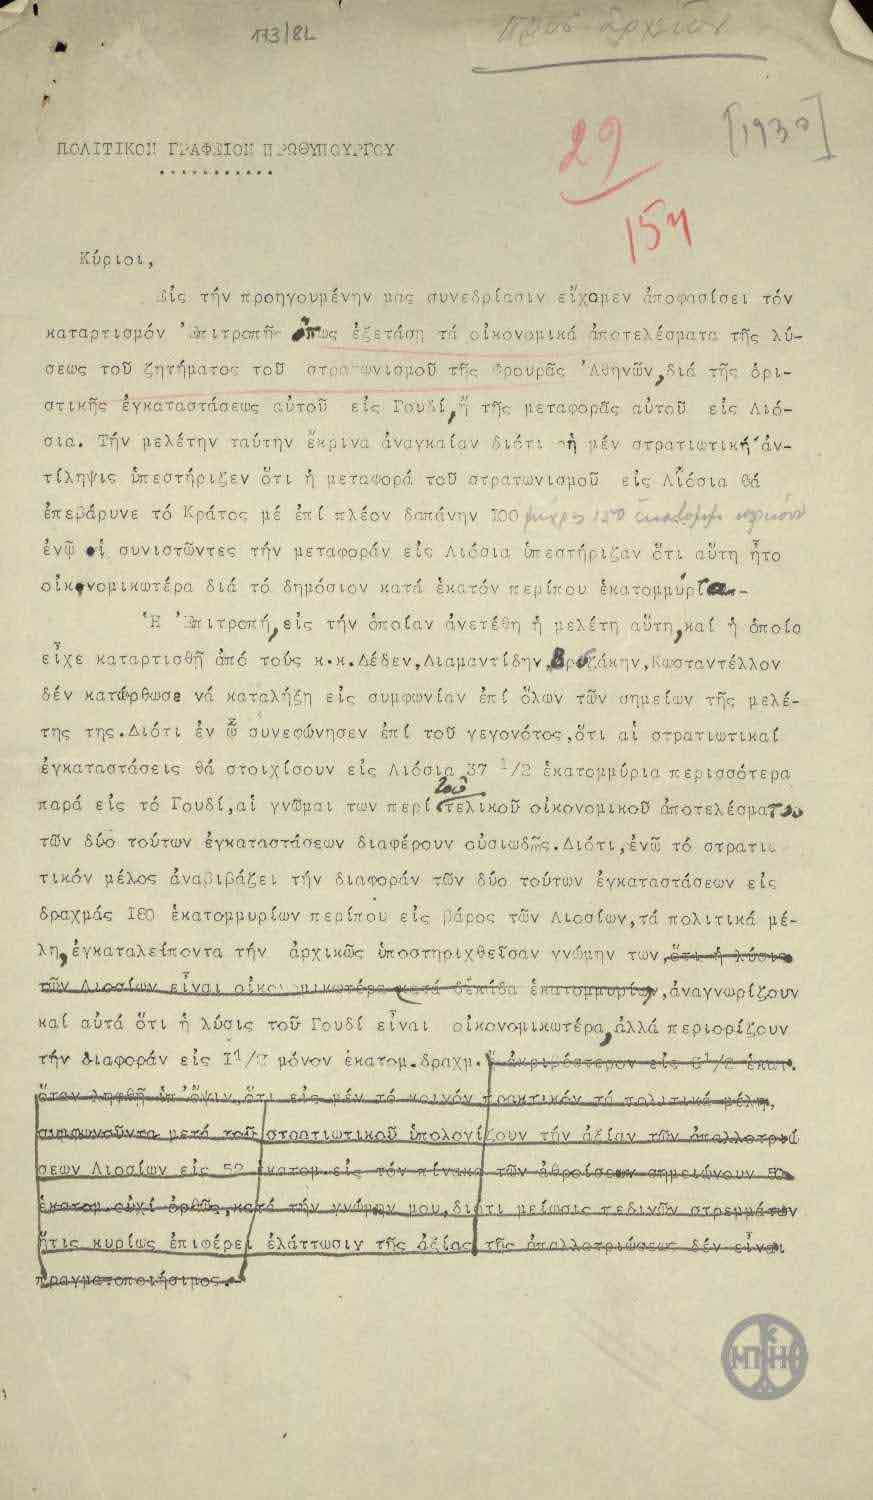 173/82
[1930]
29
154
ΠΟΛΙΤΙΚΟΝ ΓΡΑΦΕΙΟΝ ΠΡΩΘΥΠΟΥΡΓΟΥ
Κύριοι,
Εἰς τήν προηγουμένην μας συνεδρίασιν εἴχομεν ἀποφασίσει τόν
καταρτισμόν Ἐπιτροπῆς ὅπως ἐξετάσῃ τά οἰκονομικά ἀποτελέσματα τῆς λύ-
σεως τοῦ ζητήματος τοῦ στρατωνισμοῦ τῆς Φρουρᾶς Ἀθηνῶν, διά τῆς ὁρι-
στικῆς ἐγκαταστάσεως αὐτοῦ εἰς Γουδί, ἤ τῆς μεταφορᾶς αὐτοῦ εἰς Λιό-
σια. Τήν μελέτην ταύτην ἔκρινα ἀναγκαίαν διότι ἡ μέν στρατιωτική ἀν-
τίληψις ὑπεστήριζεν ὅτι ἡ μεταφορά τοῦ στρατωνισμοῦ εἰς Λιόσια θά
ἐπεβάρυνε τό Κράτος μέ ἐπί πλέον δαπάνην 100 μέχρις 120 ἑκατομμ.
ἐνῷ οἱ συνιστῶντες τήν μεταφοράν εἰς Λιόσια ὑπεστήριζαν ὅτι αὕτη ἦτο
οἰκονομικωτέρα διά τό δημόσιον κατά ἑκατόν περίπου ἑκατομμύρια.-
Ἡ Ἐπιτροπή, εἰς τήν ὁποίαν ἀνετέθη ἡ μελέτη αὕτη, καί ἡ ὁποία
εἶχε καταρτισθῇ ἀπό τούς κ.κ. Δέδεν, Διαμαντίδην, Βροζάκην, Κωσταντέλλον
δέν κατώρθωσε νά καταλήξῃ εἰς συμφωνίαν ἐπί ὅλων τῶν σημείων τῆς μελέ-
της της. Διότι ἐν ᾧ συνεφώνησεν ἐπί τοῦ γεγονότος, ὅτι αἱ στρατιωτικαί
ἐγκαταστάσεις θά στοιχίσουν εἰς Λιόσια 37 1/2 ἑκατομμύρια περισσότερα
παρά εἰς τό Γουδί, αἱ γνῶμαι των περί τοῦ τελικοῦ οἰκονομικοῦ ἀποτελέσματος
τῶν δύο τούτων ἐγκαταστάσεων διαφέρουν οὐσιωδῶς. Διότι, ἐνῷ τό στρατιω
τικόν μέλος ἀναβιβάζει τήν διαφοράν τῶν δύο τούτων ἐγκαταστάσεων εἰς
δραχμάς 180 ἑκατομμυρίων περίπου εἰς βάρος τῶν Λιοσίων, τά πολιτικά μέ-
λη, ἐγκαταλείποντα τήν ἀρχικῶς ὑποστηριχθεῖσαν γνώμην των, ὅτι ἡ λύσις
τῶν Λιοσίων εἶναι οἰκονομικωτέρα κατά δεκάδα ἑκατομμυρίων, ἀναγνωρίζουν
καί αὐτά ὅτι ἡ λύσις τοῦ Γουδί εἶναι οἰκονομικωτέρα, ἀλλά περιορίζουν
τήν διαφοράν εἰς 1 1/2 μόνον ἑκατομ. δραχμ. ἤ ἀκριβέστερον εἰς 8 1/2 ἑκατ.
ὅταν ληφθῇ ὑπ' ὄψιν, ὅτι εἰς μέν τό κοινόν πρακτικόν τά πολιτικά μέλη,
συμφωνοῦντα μετά τοῦ στρατιωτικοῦ ὑπολογίζουν τήν ἀξίαν τῶν ἀπαλλοτριώ
σεων Λιοσίων εἰς 52 ἑκατομ. εἰς τόν πίνακα τῶν ἀθροίσεων σημειώνουν
ἑκατομ. οὐχί ὀρθῶς, κατά τήν γνώμην μου, διότι μείωσις πεδινῶν στρεμμάτων
ἥτις κυρίως ἐπιφέρει ἐλάττωσιν τῆς ἀξίας τῆς ἀπαλλοτριώσεως δέν εἶναι
πραγματοποιήσιμος.-